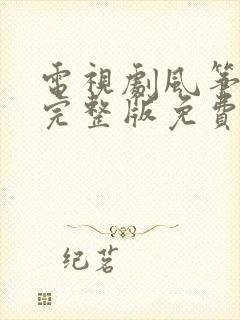 電視劇風箏
完整版免費
纪茗